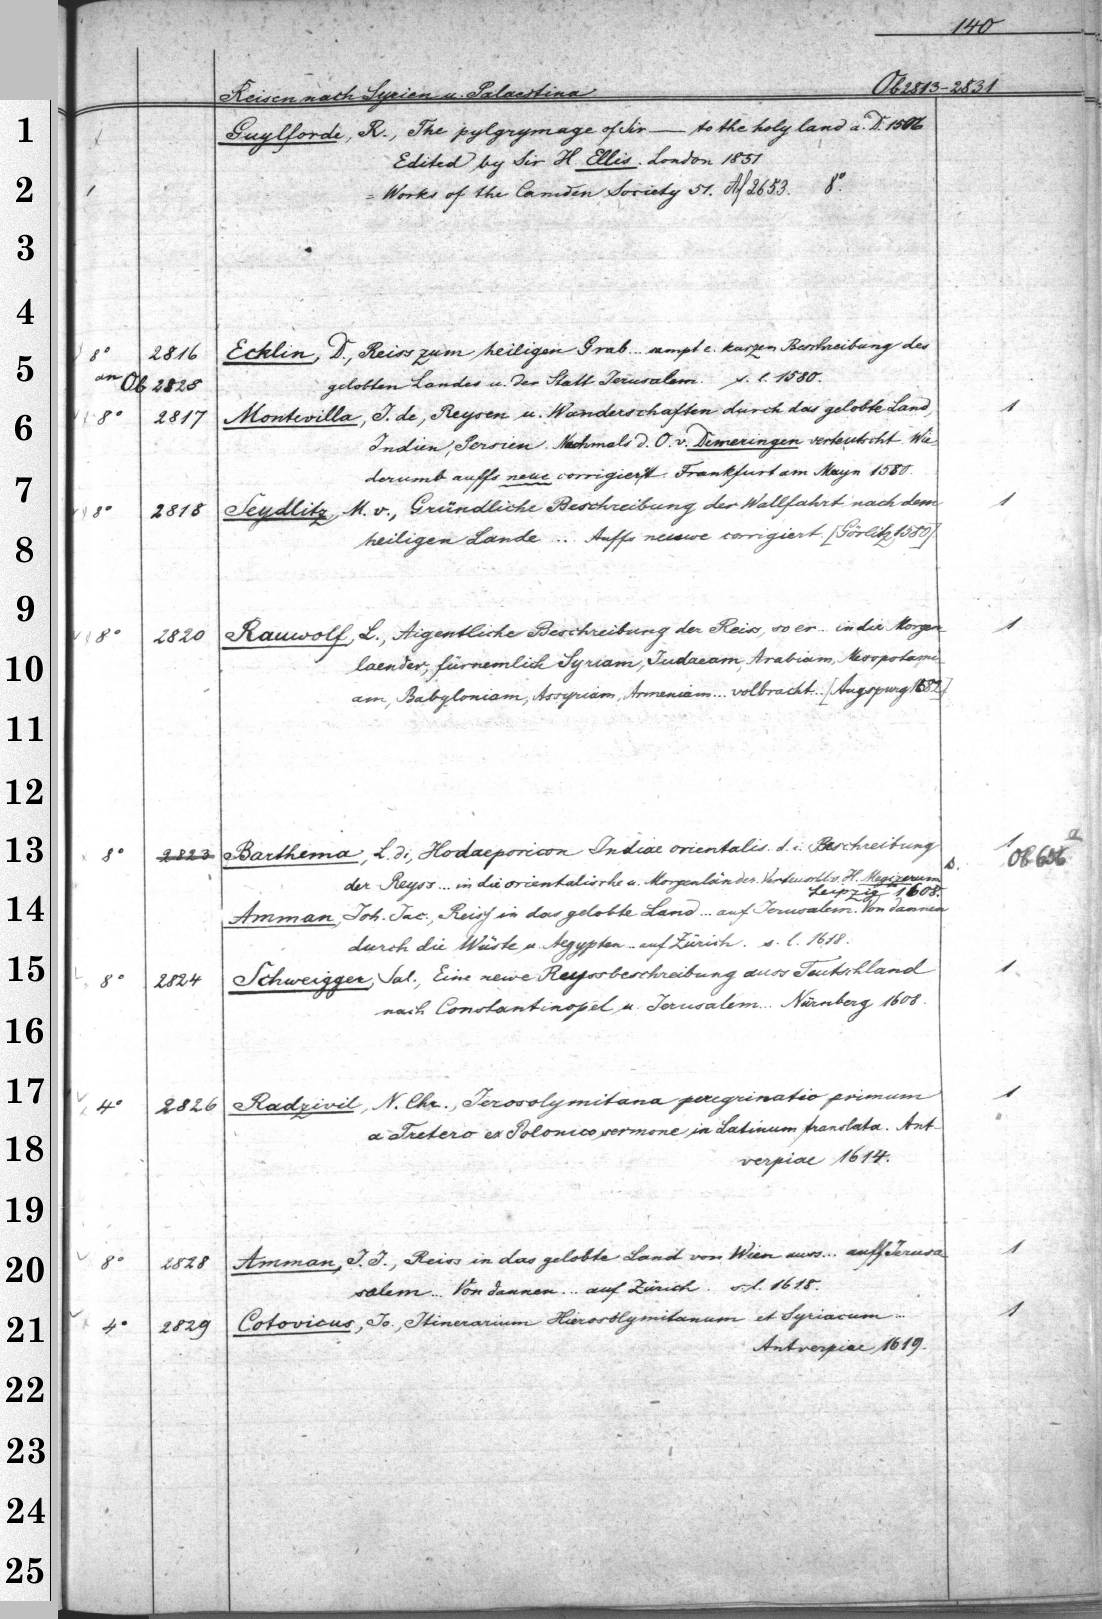 140
Reisen nach Syrien u. Palaestina Ob 2813-2831
1 Guylforde, R., The pylgrymage of Sir — to the holy land a. D. 1506
Edited by Sir H. Ellis. London 1851
2 = Works of the Camden Society 51. Af 2653. 8°.
3
4
8° 2816 Ecklin, D., Reiss zum heiligen Grab... sampt e. kurzen Beschreibung des
5 an Ob 2825 gelobten Landes u. der Statt Jerusalem. s. l. 1580.
6 8° 2817 Montevilla, J. de, Reysen u. Wanderschaften durch das gelobte Land, 1
Indien, Persien. Nachmals d. O. v. Demeringen verteutscht. Wie
7 derumb auffs neue corrigiert. Frankfurt am Mayn 1580.
8° 2818 Seydlitz, M. v., Gründliche Beschreibung der Wallfahrt nach dem 1
8 heiligen Lande ... Auffs neuwe corrigiert. [Görlitz 1580]
9
8° 2820 Rauwolf, L., Aigentliche Beschreibung der Reiss, so er... in die Morgen 1
10 laender, fürnemlich Syriam, Judaeam, Arabiam, Mesopotami-
am, Babyloniam, Assyriam, Armeniam... volbracht... [Augspurg 1582]
11
12
13 8° 2823 Barthema, L. di, Hodaeporicon Indiae orientalis. d. i. Beschreibung 1 s. Ob 656 a
der Reyss... in die orientalische u. Morgenländer. Verteuscht v. H. Megizerum
Leipzig 1608.
14 Amman, Joh. Jac., Reiss in das gelobte Land... auf Jerusalem. Von dannen
durch die Wüste u. Aegypten... auf Zürich. s. l. 1618.
15 8° 2824 Schweigger, Sal., Eine newe Reyssbeschreibung auss Teutschland 1
nach Constantinopel u. Jerusalem... Nürnberg 1608.
16
17 4° 2826 Radzivil, N. Chr., Jerosolymitana peregrinatio primum 1
a Tretero ex Polonico sermone in Latinum translata. Ant-
18 verpiae 1614.
19
8° 2828 Amman, J. J., Reiss in das gelobte Land von Wien auss... auff Jerusa 1
20 salem... Von dannen... auf Zürich. s. l. 1618.
21 4° 2829 Cotovicus, Jo., Itinerarium Hierosolymitanum et Syriacum... 1
Antverpiae 1619.
22
23
24
25